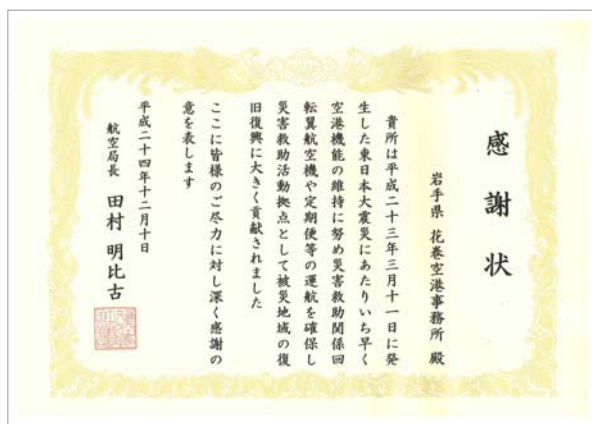 感謝状
岩手県 花巻空港事務所 殿
貴所は平成二十三年三月十一日に発
生した東日本大震災にあたりいち早く
空港機能の維持に努め災害救助関係回
転翼航空機や定期便等の運航を確保し
災害救助活動拠点として被災地域の復
旧復興に大きく貢献されました
ここに皆様のご尽力に対し深く感謝の
意を表します
平成二十四年十二月十日
航空局長 田村 明比古